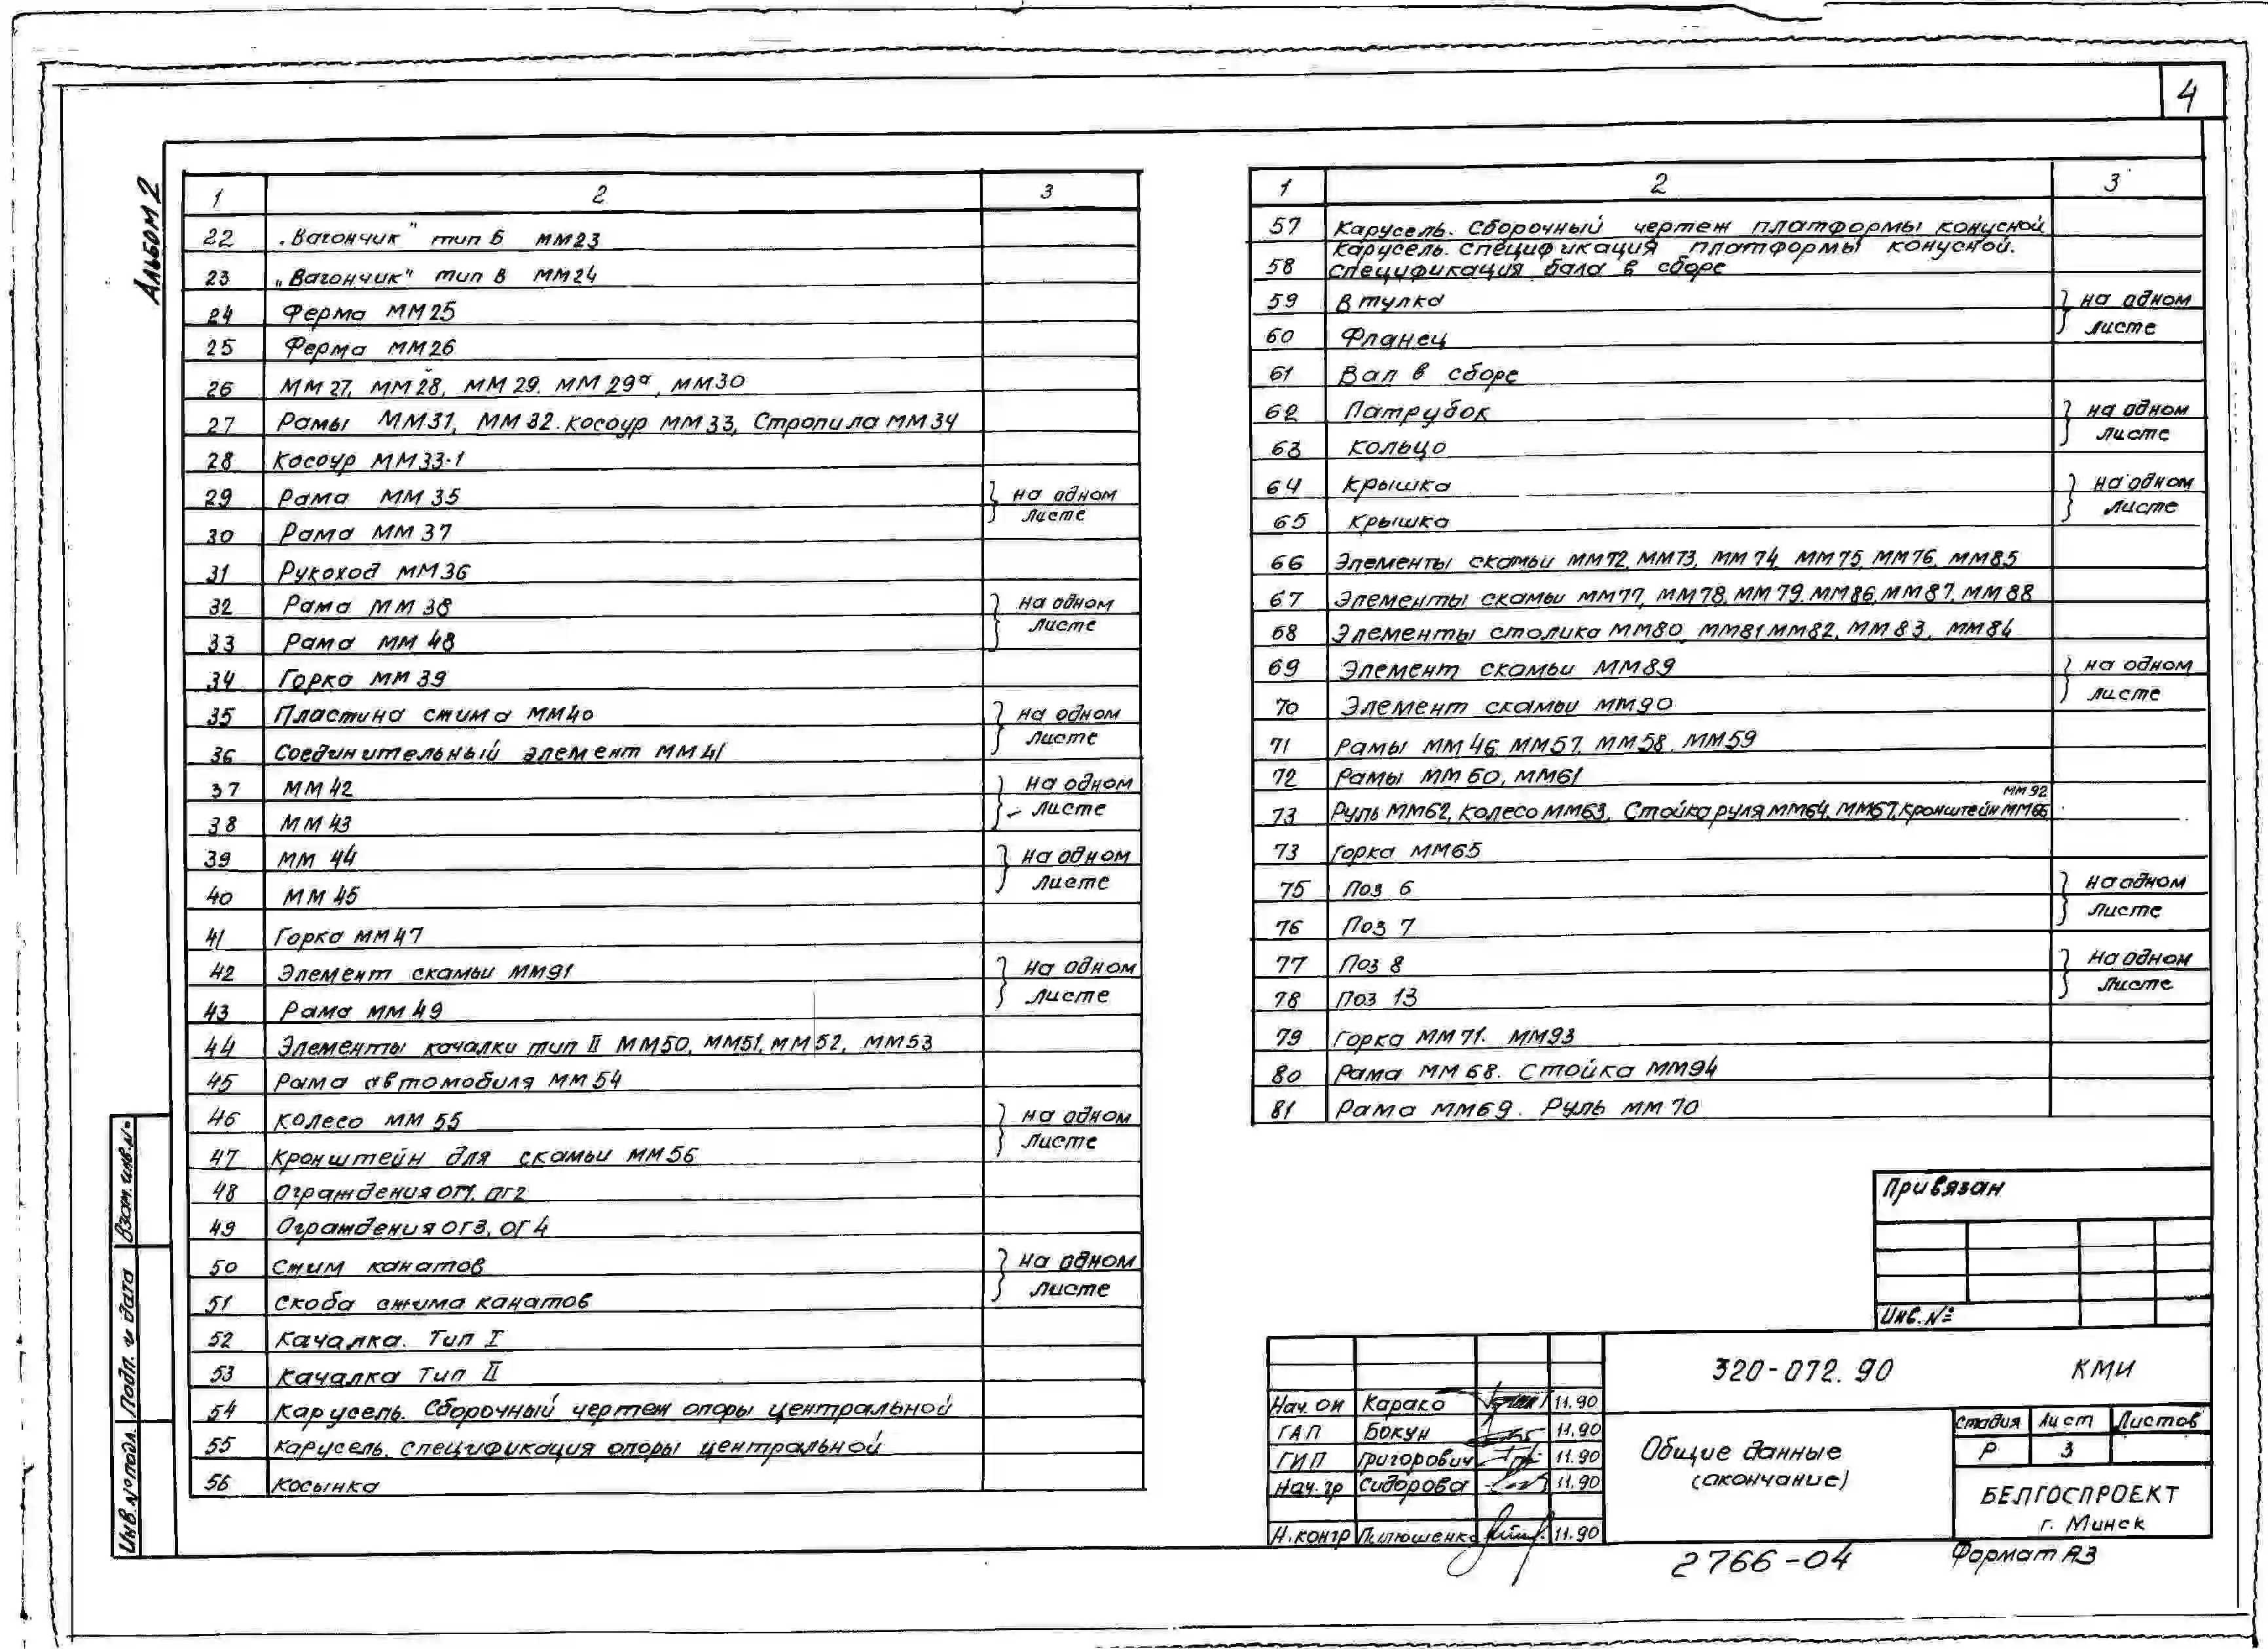 4
Альбом 2
1 2 3
22 „Вагончик" тип Б ММ23
23 „Вагончик" тип В ММ24
24 Ферма ММ25
25 Ферма ММ26
26 ММ27, ММ28, ММ29, ММ29а, ММ30
27 Рамы ММ31, ММ32. Косоур ММ33, Стропила ММ34
28 Косоур ММ33-1
29 Рама ММ35 } на одном
листе
30 Рама ММ37
31 Рукоход ММ36
32 Рама ММ38 } на одном
листе
33 Рама ММ48
34 Горка ММ39
35 Пластина сжима ММ40 } на одном
листе
36 Соединительный элемент ММ41
37 ММ42 } на одном
листе
38 ММ43
39 ММ44 } на одном
листе
40 ММ45
41 Горка ММ47
42 Элемент скамьи ММ91 } на одном
листе
43 Рама ММ49
44 Элементы качалки тип II ММ50, ММ51, ММ52, ММ53
45 Рама автомобиля ММ54
46 Колесо ММ55 } на одном
листе
47 Кронштейн для скамьи ММ56
48 Ограждения ОГ1, ОГ2
49 Ограждения ОГ3, ОГ4
50 Сжим канатов } на одном
листе
51 Скоба сжима канатов
52 Качалка. Тип I
53 Качалка Тип II
54 Карусель. Сборочный чертеж опоры центральной
55 Карусель. Спецификация опоры центральной
56 Косынка
1 2 3
57 Карусель. Сборочный чертеж платформы конусной
Карусель. Спецификация платформы конусной.
58 Спецификация вала в сборе
59 Втулка } на одном
листе
60 Фланец
61 Вал в сборе
62 Патрубок } на одном
листе
63 Кольцо
64 Крышка } на одном
листе
65 Крышка
66 Элементы скамьи ММ72, ММ73, ММ74, ММ75, ММ76, ММ85
67 Элементы скамьи ММ77, ММ78, ММ79, ММ86, ММ87, ММ88
68 Элементы столика ММ80, ММ81, ММ82, ММ83, ММ84
69 Элемент скамьи ММ89 } на одном
листе
70 Элемент скамьи ММ90
71 Рамы ММ46, ММ57, ММ58, ММ59
72 Рамы ММ60, ММ61
ММ92
73 Руль ММ62, Колесо ММ63, Стойка руля ММ64, ММ67, Кронштейн ММ66
73 Горка ММ65
75 Поз 6 } на одном
листе
76 Поз 7
77 Поз 8 } на одном
листе
78 Поз 13
79 Горка ММ71. ММ93
80 Рама ММ68. Стойка ММ94
81 Рама ММ69. Руль ММ70
Привязан
Инв. №
320-072.90 КМИ
Нач. ОИ Карако 11.90
ГАП Бокун 11.90
ГИП Григорович 11.90
Нач. гр Сидорова 11.90
Н. контр Пилюшенко 11.90
Общие данные
(окончание)
Стадия Лист Листов
Р 3
БЕЛГОСПРОЕКТ
г. Минск
2766-04 Формат А3
Взам. инв. №
Подп. и дата
Инв. № подл.